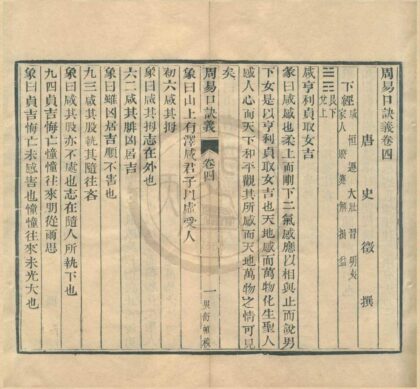 周易口訣義卷四
唐 史 徵 撰
下經 咸 恒 遯 大壯 晉 明夷
家人 睽 蹇 解 損 益
䷞ 艮下
兌上
咸亨利貞取女吉
彖曰咸感也柔上而剛下二氣感應以相與止而說男
下女是以亨利貞取女吉也天地感而萬物化生聖人
感人心而天下和平觀其所感而天地萬物之情可見
矣
周易口訣義 卷四 一
象曰山上有澤咸君子以虛受人
初六咸其拇
象曰咸其拇志在外也
六二咸其腓凶居吉
象曰雖凶居吉順不害也
九三咸其股執其隨往吝
象曰咸其股亦不處也志在隨人所執下也
九四貞吉悔亡憧憧往來朋從爾思
象曰貞吉悔亡未感害也憧憧往來未光大也